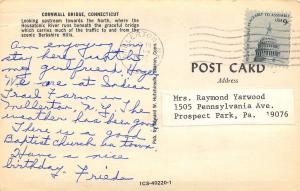 CORNWALL BRIDGE, CONNECTICUT
Looking upstream towards the North, where the
Housatonic River runs beneath the graceful bridge
which carries much of the traffic to and from the
scenic Berkshire Hills.
Am enjoying my
stay here with
my girlfriend, Hazel
We are at Indian
Trail Farm in
Millerton N.Y. The
weather has been good
There is a good
Baptist Church in town.
Have a nice
birthday - Frieda
ICS-40220-1
POST CARD
Address
Mrs. Raymond Yarwood
1505 Pennsylvania Ave.
Prospect Park, Pa. 19076